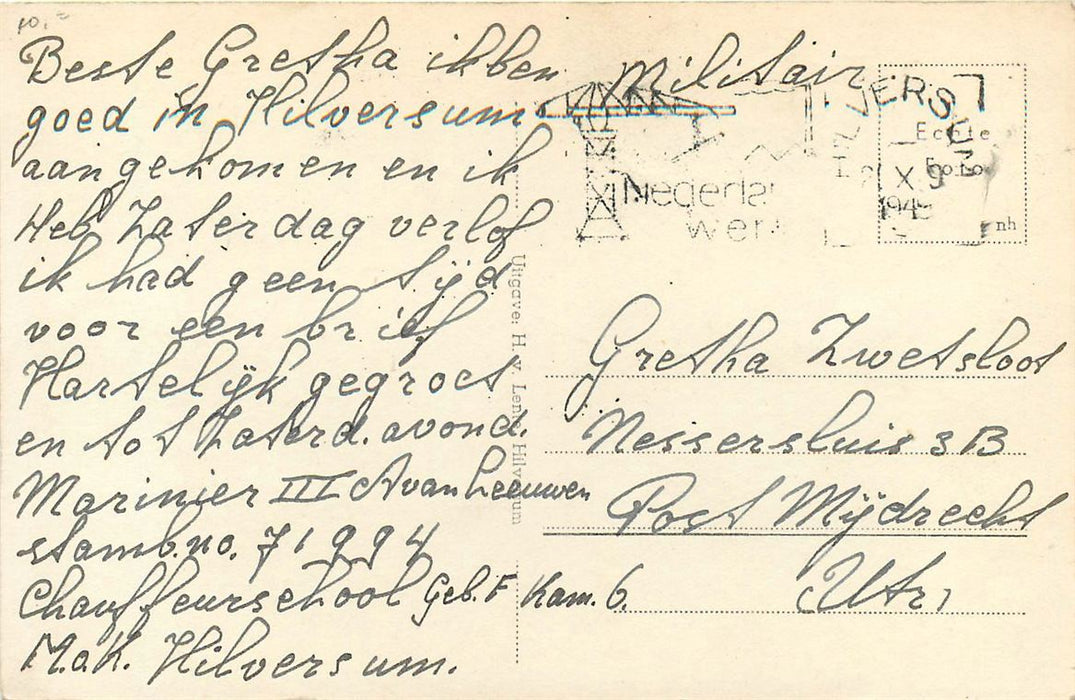 10.=
Beste Gretha ik ben
goed in Hilversum
aangekomen en ik
Heb Zaterdag verlof
ik had geen tijd
voor een brief
Hartelijk gegroet
en tot Zaterd. avond.
Marinier III A van Leeuwen
stamb.no. 71994
Chauffeurschool Geb. F Kam. 6.
M.a.K. Hilversum.
Militair
HILVERSUM
X
194
Nederla
wer
Echte
Foto
nh
Uitgave: H. v.
Gretha Zwetsloot
Nessersluis 3B
Post Mijdrecht
Utr.